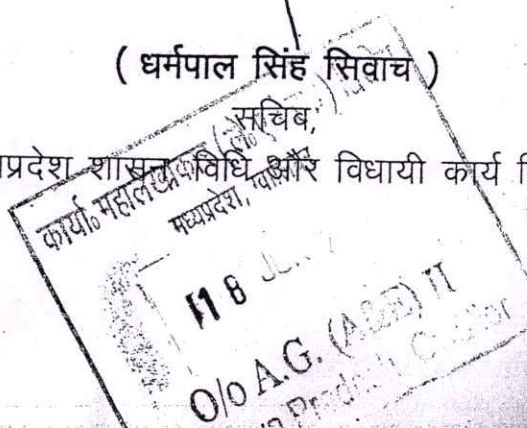 ( धर्मपाल सिंह सिवाच )
सचिव,
प्रदेश शासन, विधि और विधायी कार्य
कार्या. महालेखाकार
मध्यप्रदेश, ग्वालियर
18
O/o A.G. (A&E) II